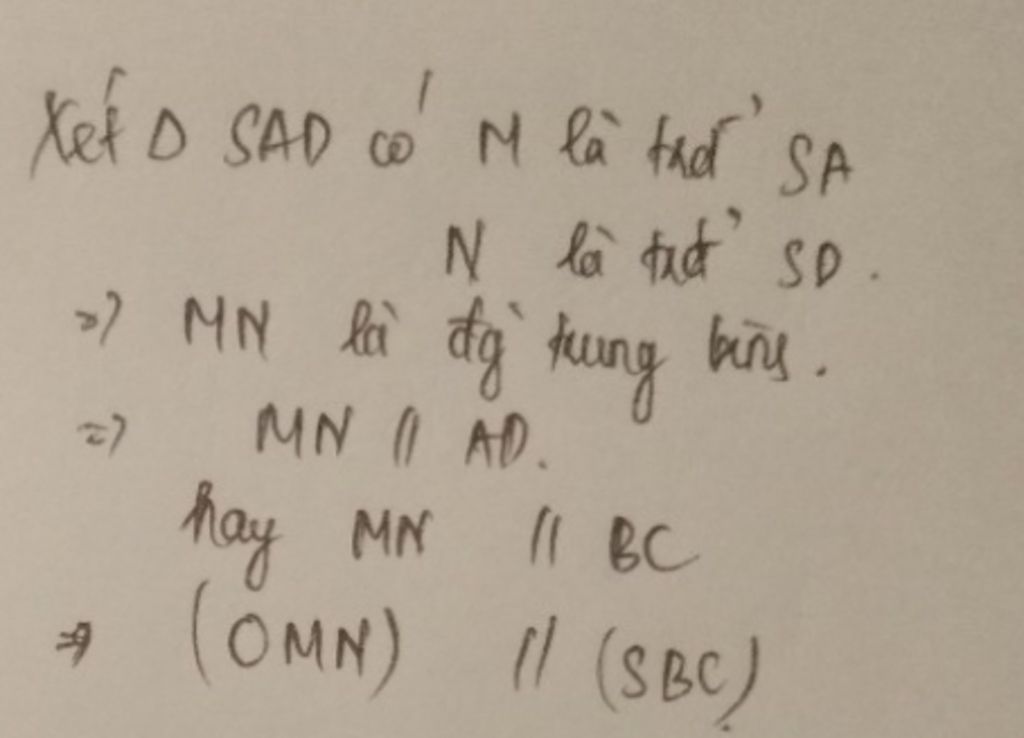 Xét Δ SAD có M là trđ' SA
N là trđ' SD.
=) MN là đg` trung bình.
=) MN // AD.
hay MN // BC
⇒ (OMN) // (SBC)